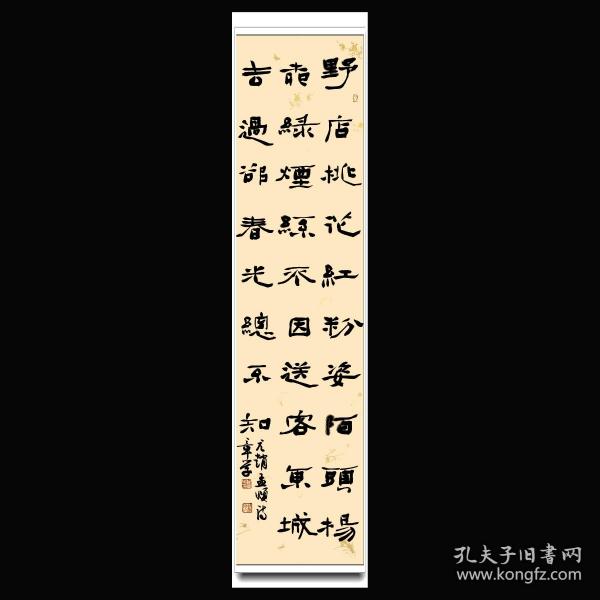 野店桃花紅粉姿陌頭楊
柳綠煙絲不因送客東城
去過卻春光總不知
元趙孟頫詩
孔夫子旧書网
www.kongfz.com